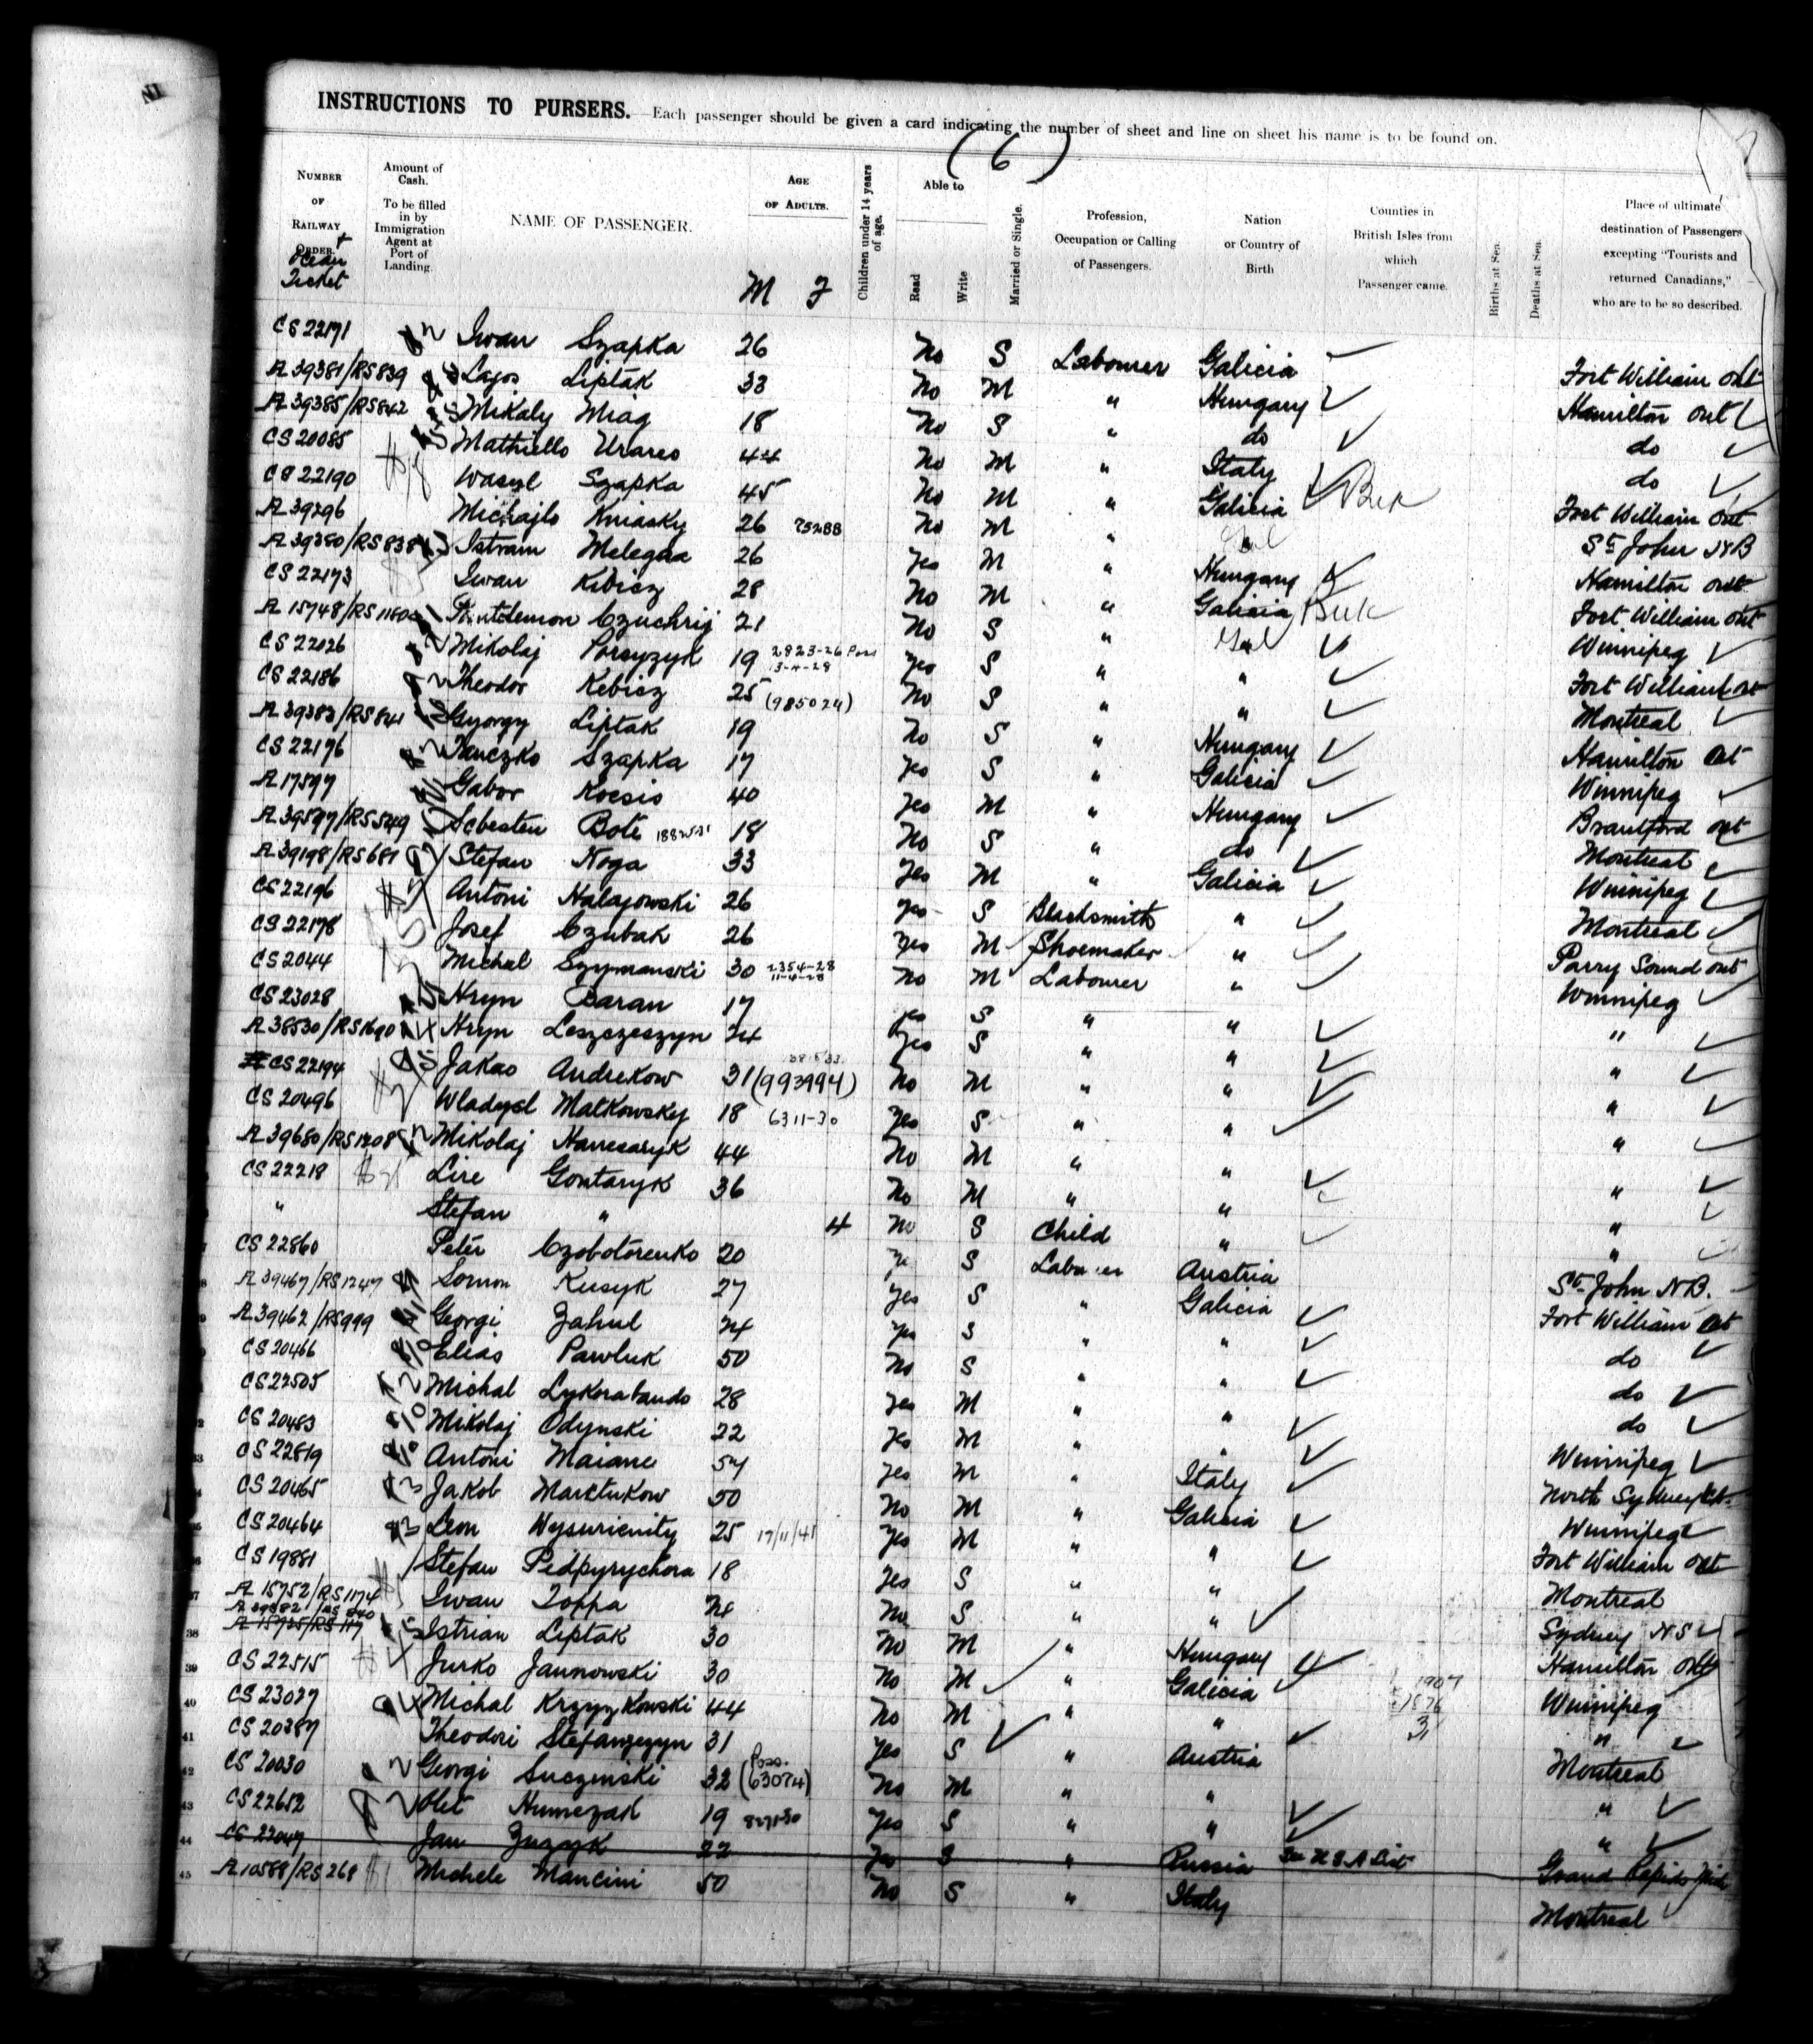 INSTRUCTIONS TO PURSERS. Each passenger should be given a card indicating the number of sheet and line on sheet his name is to be found on.
(6)
NUMBER OF RAILWAY ORDER. + Ocean Ticket
Amount of Cash. To be filled in by Immigration Agent at Port of Landing.
NAME OF PASSENGER.
AGE OF ADULTS. M F
Children under 14 years of age.
Able to Read Write
Married or Single.
Profession, Occupation or Calling of Passengers.
Nation or Country of Birth
Counties in British Isles from which Passenger came.
Births at Sea.
Deaths at Sea.
Place of ultimate destination of Passengers excepting "Tourists and returned Canadians," who are to be so described.
CS 22171 Iwan Szapka 26 No S Labourer Galicia Fort William Ont
A 39381/RS839 Lajos Liptak 33 No M " Hungary Hamilton Ont
A 39385/RS842 Mikaly Miag 18 No S " do do
CS 20085 Mathiello Urareo 44 No M " Italy do
CS 22190 Wasyl Szapka 45 No M " Galicia Buk Fort William Ont
A 39296 Michajlo Kniasky 26 75288 No M " " St John NB
A 39380/RS838 Istram Melegaa 26 Yes M " Hungary Hamilton Ont
CS 22173 Iwan Kibicz 28 No M " Galicia Buk Fort William Ont
A 15748/RS1180 Czuchrij 21 No S " Gal Winnipeg
CS 22026 Mikolaj Porsyzyk 19 2823-26 13-4-28 Yes S " " Fort William Ont
CS 22186 Theodor Kebicz 25 (985024) No S " " Montreal
A 39383/RS841 Gyorgy Liptak 19 No S " Hungary Hamilton Ont
CS 22176 Ianczko Szapka 17 Yes S " Galicia Winnipeg
A 17597 Gabor Kocsis 40 Yes M " Hungary Brantford Ont
A 39597/RS549 Sebesten Bote 18 No S " do Montreal
A 39198/RS681 Stefan Noga 33 Yes M " Galicia Winnipeg
CS 22196 Antoni Halajowski 26 Yes S Blacksmith " Montreal
CS 22178 Josef Czubak 26 Yes M Shoemaker " Parry Sound Ont
CS 2044 Michal Szymanski 30 2354-28 11-4-28 No M Labourer " Winnipeg
CS 23028 Hryn Baran 17 Yes S " " "
A 38530/RS1690 Hryn Leszczeszyn 24 Yes S " " "
CS 22194 Jakao Andrekow 31 (993994) No M " " "
CS 20496 Wladysl Matkowsky 18 6311-30 Yes S " " "
A 39680/RS1208 Mikolaj Hawesaryk 44 No M " " "
CS 22218 Lire Gontaryk 36 No M " " "
" Stefan " 4 No S Child " "
CS 22860 Peter Czobotorenko 20 Ye S Labourer Austria St John NB.
A 39467/RS1247 Somon Kusyk 27 Yes S " Galicia Fort William Ont
A 39462/RS999 Georgi Zahul 24 Yes S " " do
CS 20466 Elias Pawluk 50 No S " " do
CS 22505 Michal Lykorabando 28 Yes M " " do
CS 20483 Mikolaj Odynski 22 Yes M " " Winnipeg
33 CS 22819 Antoni Maiane 54 Yes M " Italy North Sydney
CS 20465 Jakob Marctukow 50 No M " Galicia Winnipeg
CS 20464 Leon Wysuricnity 25 17/11/41 Yes M " " Fort William Ont
CS 19881 Stefan Pidpyrychora 18 Yes S " " Montreal
37 A 15752/RS1174 Iwan Toppa 24 No S " " Sydney NS
38 A 39382/RS 840 A 15725/RS 117 Istrian Liptak 30 No M " Hungary Hamilton Ont
39 CS 22515 Jurko Jaunowski 30 No M " Galicia Winnipeg
40 CS 23027 Michal Krzyzkowski 44 No M " " "
41 CS 20387 Theodori Stefanzezyn 31 Yes S " Austria Montreal
42 CS 20030 Georgi Suczinski 32 (63074) No M " " "
43 CS 22652 Olet Humezak 19 Yes S " " "
44 CS 22047 Jan Zuzyk 22 Yes S " Russia See USA List Grand Rapids Mich
45 A 10588/RS268 Michele Mancini 50 No S " Italy Montreal